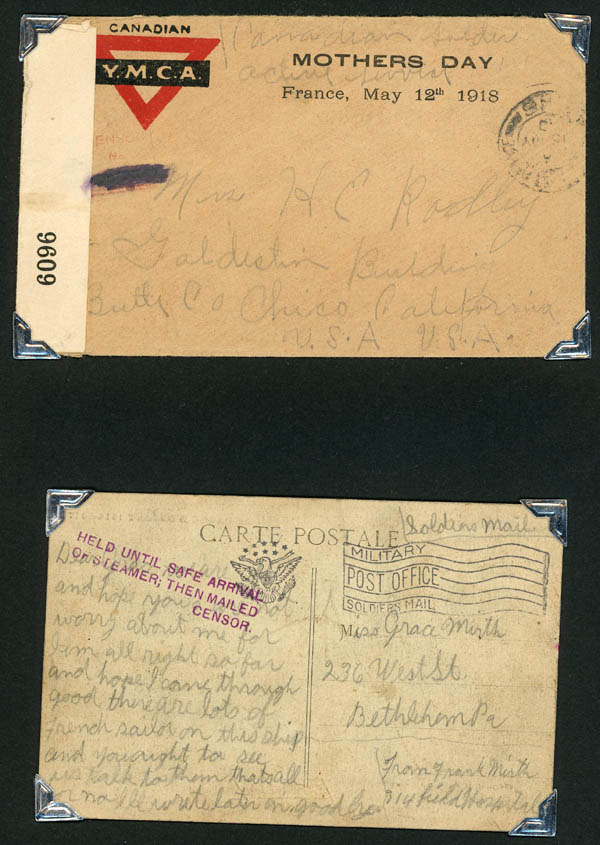 CANADIAN
Y.M.C.A.
Canadian soldier
active service
MOTHERS DAY
France, May 12th 1918
6096
Mrs H E Radley
Building
Butte Co Chico California
U.S.A U.S.A.
CARTE POSTALE
Soldiers Mail
HELD UNTIL SAFE ARRIVAL
OF STEAMER; THEN MAILED
CENSOR.
MILITARY
POST OFFICE
SOLDIERS MAIL
Dear
and hope you
worry about me for
I'm all right so far
and hope I come through
good there are lots of
french sailor on this ship
and you ought to see
us talk to them thats all
for no Ill write later on good bye
Miss Grace Mirth
236 West St.
Bethlehem Pa
From Frank Mirth
314 Field Hospital